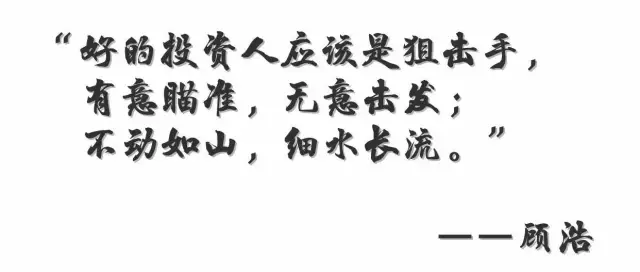 “好的投资人应该是狙击手，
有意瞄准，无意击发；
不动如山，细水长流。”
——顾浩